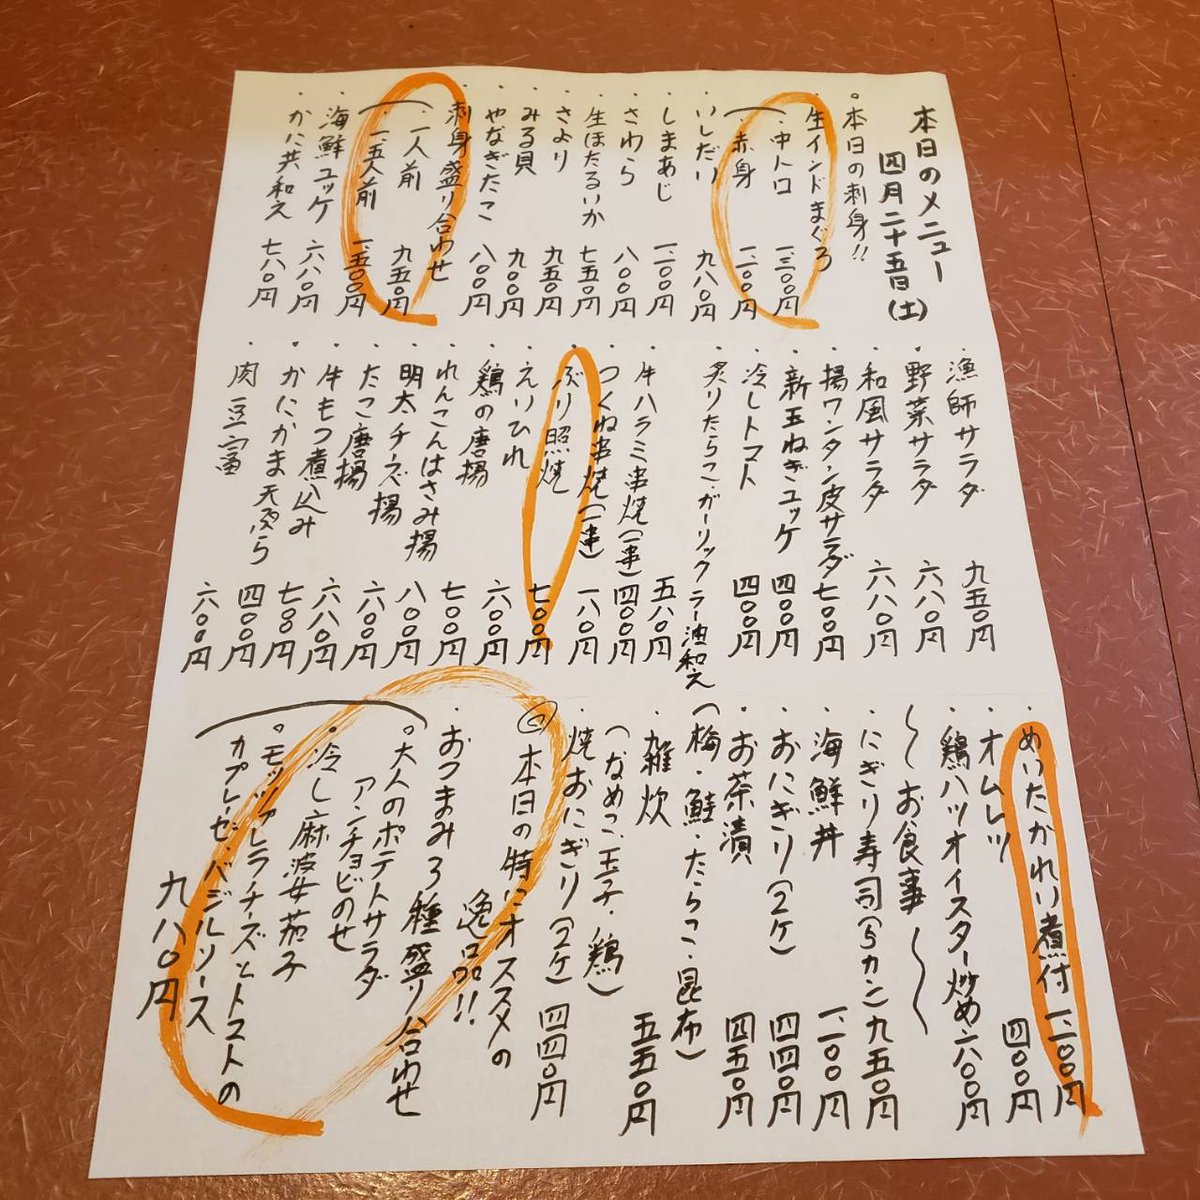 本日のメニュー
四月二十五日(土)
。本日の刺身!!
・生インドまぐろ
・中トロ 一、三〇〇円
・赤身 一、一〇〇円
・いしだい 九八〇円
・しまあじ 一、一〇〇円
・さわら 八〇〇円
・生ほたるいか 七五〇円
・さより 九五〇円
・みる貝 九〇〇円
・やなぎたこ 八〇〇円
・刺身盛り合わせ
・一人前 九五〇円
・一、五人前 一、五〇〇円
・海鮮ユッケ 六八〇円
・かに共和え 七八〇円
・漁師サラダ 九五〇円
・野菜サラダ 六八〇円
・和風サラダ 六八〇円
・揚ワンタン皮サラダ 七〇〇円
・新玉ねぎユッケ 四〇〇円
・冷しトマト 四〇〇円
・炙りたらこガーリックラー油和え 五八〇円
・牛ハラミ串焼(一串) 四〇〇円
・つくね串焼(一串) 一八〇円
・ぶり照焼 七〇〇円
・えいひれ 六〇〇円
・鶏の唐揚 七〇〇円
・れんこんはさみ揚 八〇〇円
・明太チーズ揚 六〇〇円
・たこ唐揚 六八〇円
・牛もつ煮込み 七〇〇円
・かにかま天ぷら 四〇〇円
・肉豆富 六〇〇円
・めいたかれい煮付 一、二〇〇円
・オムレツ 四〇〇円
・鶏ハツオイスター炒め 六八〇円
〜〜お食事〜〜
・にぎり寿司(5カン) 九五〇円
・海鮮丼 一、一〇〇円
・おにぎり(2ケ) 四四〇円
・お茶漬 四五〇円
(梅・鮭・たらこ・昆布)
・雑炊 五五〇円
(なめこ・玉子・鶏)
・焼おにぎり(2ケ) 四四〇円
◎本日の特にオススメの
逸品!!
・おつまみ3種盛り合わせ
。大人のポテトサラダ
アンチョビのせ
。冷し麻波女茄子
。モッツァレラチーズとトマトの
カプレーゼ・バジルソース
九八〇円